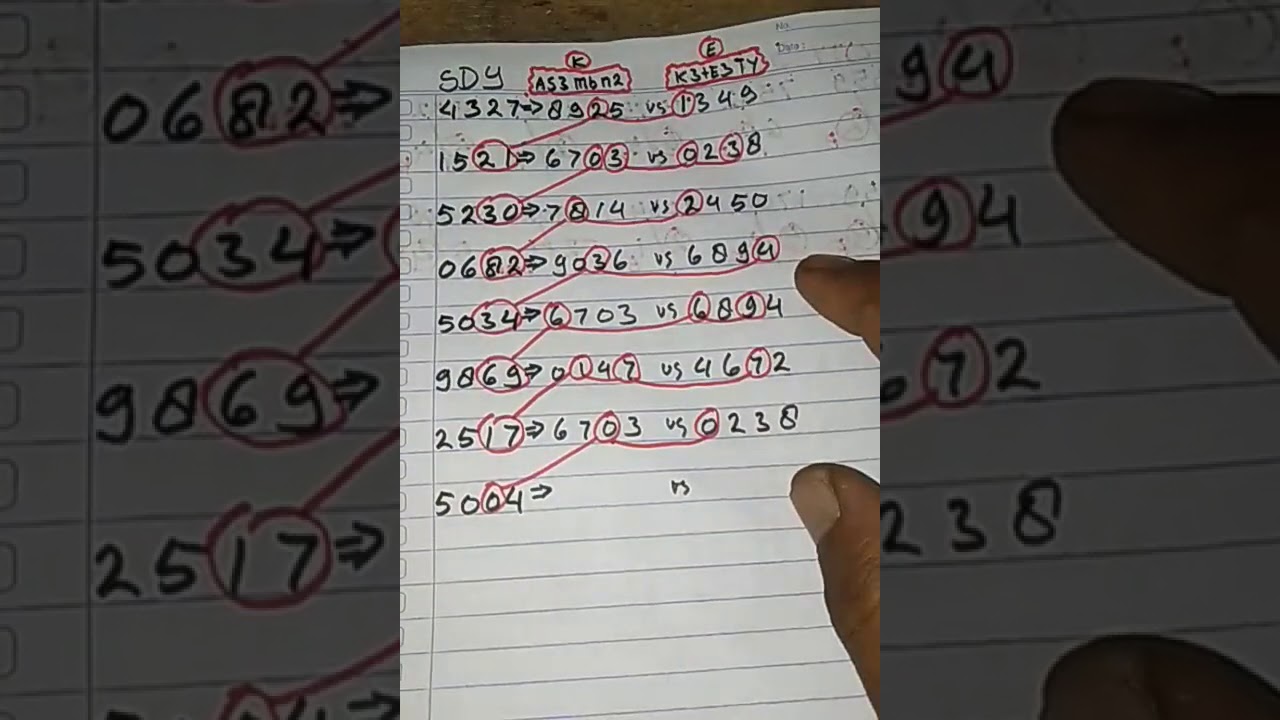 No
Date:
K E
SDY AS3 mbn2 K3+E3 TY
4327⇒8925 vs 1349
1521⇒6703 vs 0238
5230⇒7814 vs 2450
0682⇒9036 vs 6894
5034⇒6703 vs 6894
9869⇒0147 vs 4672
2517⇒6703 vs 0238
5004⇒ vs
0682
5034⇒
9869
2517⇒
94
94
72
238